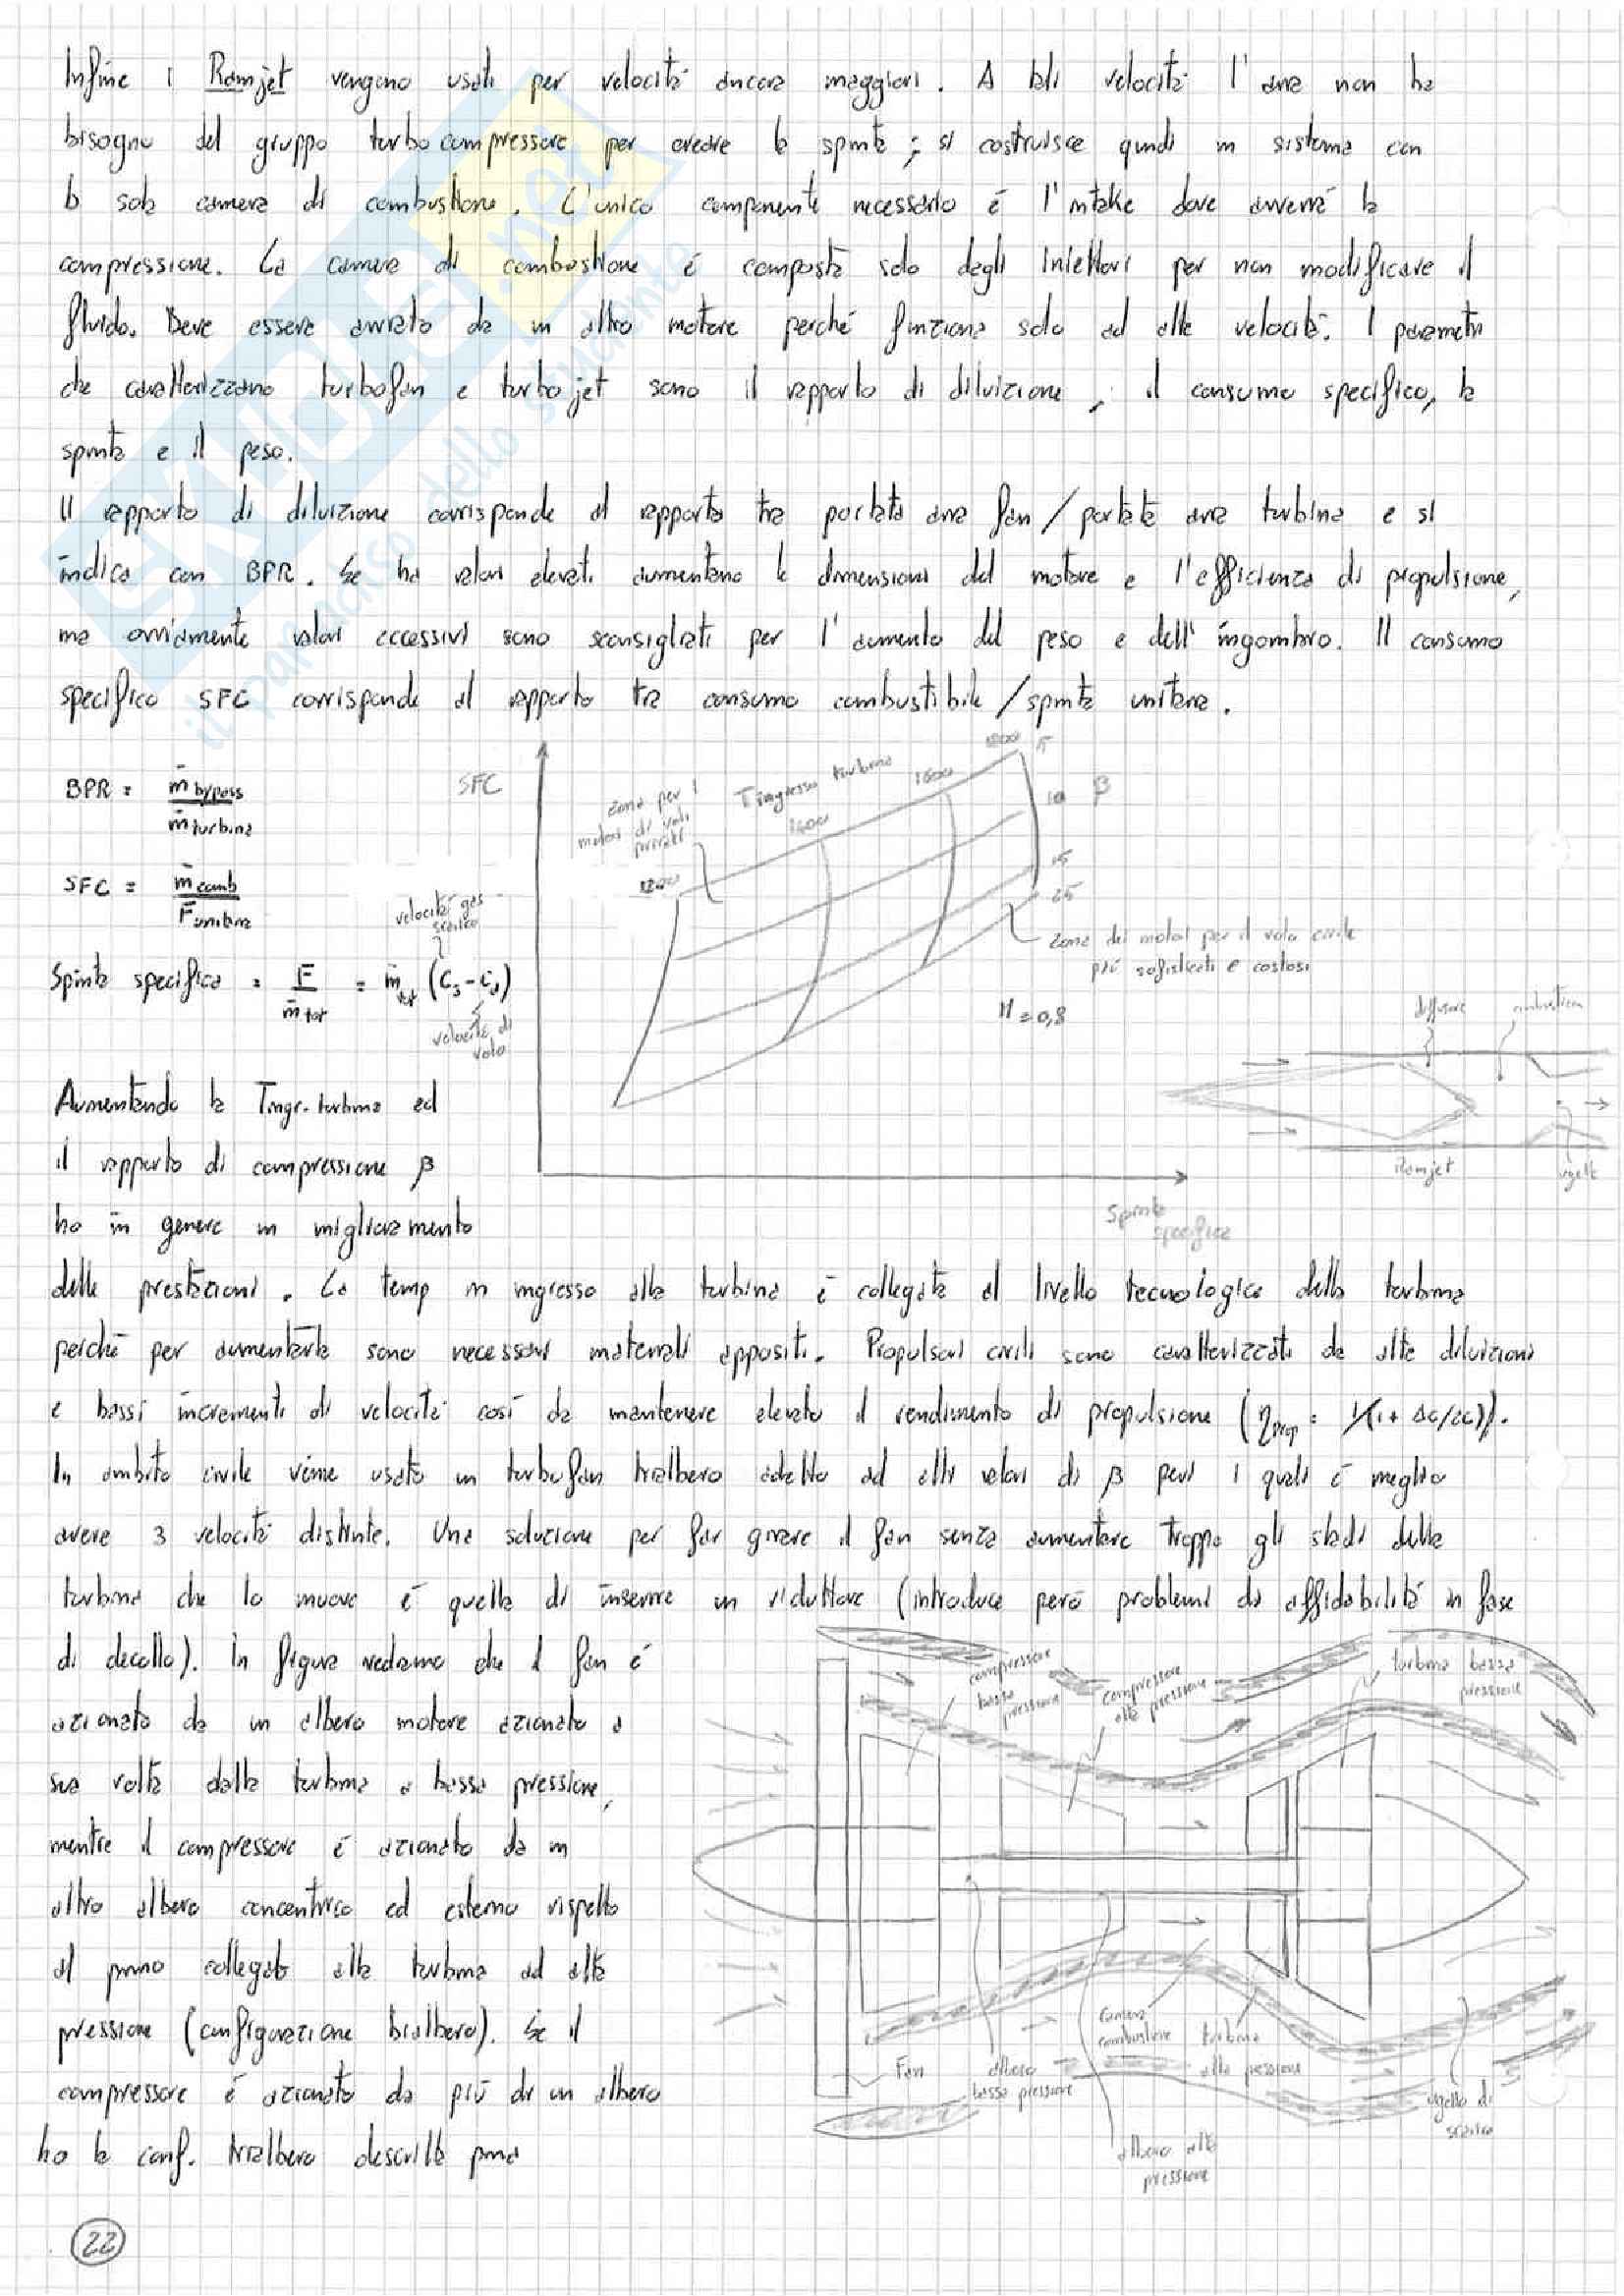 Infine i Ramjet vengono usati per velocità ancora maggiori. A tali velocità l'aria non ha
bisogno del gruppo turbocompressore per creare la spinta; si costruisce quindi un sistema con
la sola camera di combustione. L'unico componente necessario è l'intake dove avverrà la
compressione. La camera di combustione è composta solo dagli iniettori per non modificare il
fluido. Deve essere avviato da un altro motore perché funziona solo ad alte velocità. I parametri
che caratterizzano turbofan e turbojet sono il rapporto di diluizione, il consumo specifico, la
spinta e il peso.
Il rapporto di diluizione corrisponde al rapporto tra portata aria fan / portata aria turbina e si
indica con BPR. Se ha valori elevati aumentano le dimensioni del motore e l'efficienza di propulsione,
ma ovviamente valori eccessivi sono sconsigliati per l'aumento del peso e dell'ingombro. Il consumo
specifico SFC corrisponde al rapporto tra consumo combustibile / spinta unitaria.
BPR = ṁ bypass / ṁ turbina
SFC = ṁ comb / F unitaria
velocità gas scarico
Spinta specifica = F / ṁ tot = ṁ tot (Cs - Ca)
velocità di volo
SFC
zona per i
motori di voli
privati
T ingresso turbina
1200
1400
1600
1800
5
10 β
15
25
zona dei motori per il volo civile
più sofisticati e costosi
M = 0,8
Spinta
specifica
diffusore
combustione
Ramjet
ugello
Aumentando la T ingr. turbina ed
il rapporto di compressione β
ho in genere un miglioramento
delle prestazioni. La temp in ingresso alla turbina è collegata al livello tecnologico della turbina
perché per aumentarla sono necessari materiali appositi. Propulsori civili sono caratterizzati da alte diluizioni
e bassi incrementi di velocità così da mantenere elevato il rendimento di propulsione (ηprop = 1/(1 + Δc/2c)).
In ambito civile viene usato un turbofan trialbero adatto ad alti valori di β per i quali è meglio
avere 3 velocità distinte. Una soluzione per far girare il fan senza aumentare troppo gli stadi della
turbina che lo muove è quella di inserire un riduttore (introduce però problemi di affidabilità in fase
di decollo). In figura vediamo che il fan è
azionato da un albero motore azionato a
sua volta dalla turbina a bassa pressione,
mentre il compressore è azionato da un
altro albero concentrico ed esterno rispetto
al primo collegato alla turbina ad alta
pressione (configurazione bialbero). Se il
compressore è azionato da più di un albero
ho la conf. trialbero descritta prima
compressore
bassa
pressione
compressore
alta pressione
turbina bassa
pressione
Fan
albero
bassa pressione
camera
combustione
turbina
alta pressione
ugello di
scarico
albero alta
pressione
22
SKUOLA.net
il paradiso dello studente